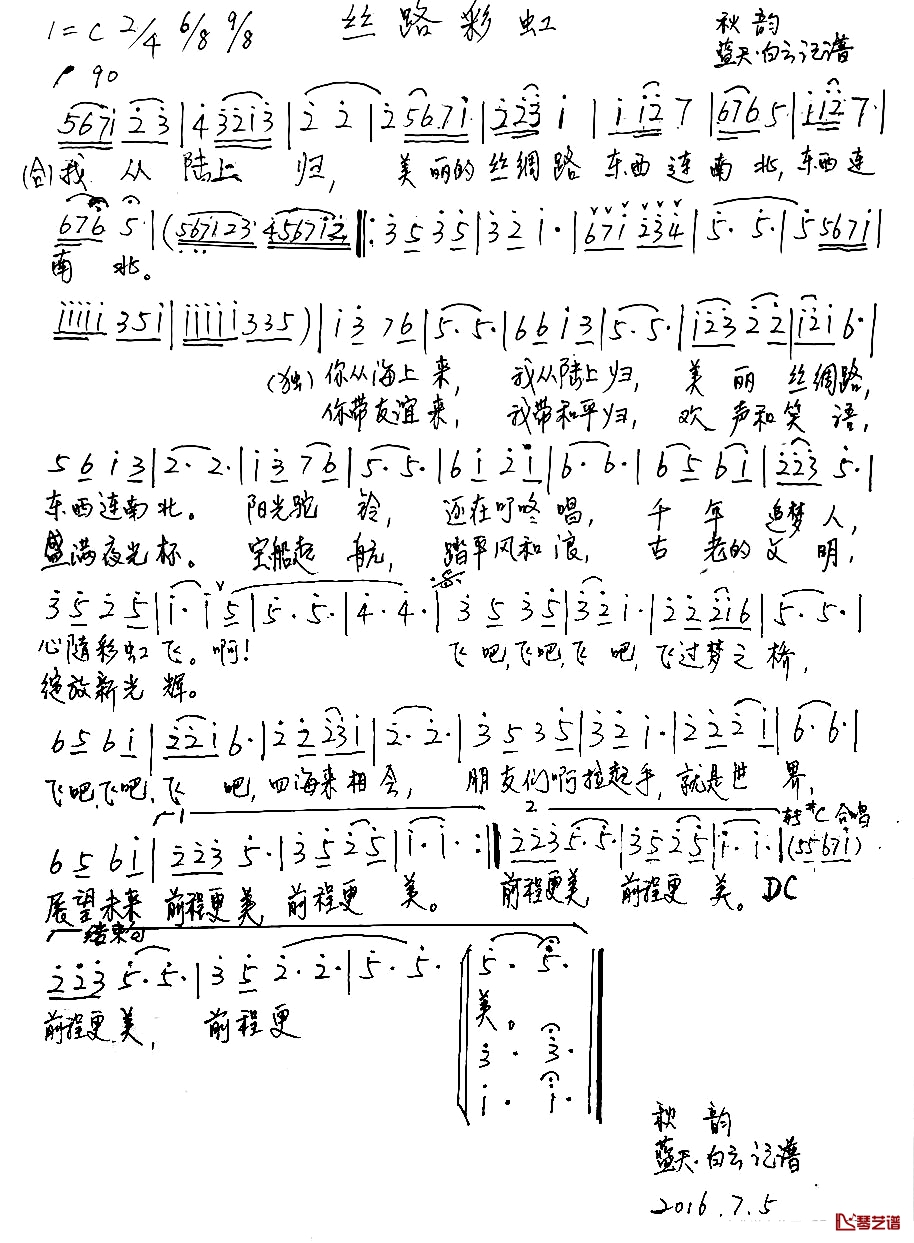 1=C 2/4 6/8 9/8 丝路彩虹 秋韵
蓝天·白云记谱
♩90
5671 23 | 4 3213 | 2 2 | 2 5671 | 2 23 1 | 1 12 7 | 676 5· | 112 7· |
(合)我 从 陆上 归, 美丽的丝绸路 东西连南北,东西连
676 5· | (567123 456712 ‖: 3 5 3 5 | 3 2 1· | 671 234 | 5· 5· | 5 5671 |
南 北。
11111 351 | 111111 335 ) | 1 3 7 6 | 5· 5· | 6 6 1 3 | 5· 5· | 123 2 2 | 121 6· |
(独)你从海上来, 我从陆上归, 美 丽 丝绸路,
你带友谊来, 我带和平归, 欢 声和笑 语,
5 6 1 3 | 2· 2· | 1 3 7 6 | 5· 5· | 6 1 2 1 | 6· 6· | 6 5 6 1 | 223 5· |
东西连南北。 阳光驼 铃, 还在叮咚 唱, 千 年 追梦人,
盛满夜光杯。 宝船起 航, 踏平风和 浪, 古 老的文 明,
3 5 2 5 | 1· 1 5 | 5· 5· | 4· 4· | 3 5 3 5 | 3 2 1· | 2 2 216 | 5· 5· |
心随彩虹 飞。啊! 飞吧,飞吧,飞 吧,飞过梦之桥,
绽放新光 辉。
6 5 6 1 | 221 6· | 2 2 231 | 2· 2· | 3 5 3 5 | 3 2 1· | 2 2 2 1 | 6· 6· |
飞吧,飞吧,飞 吧,四海来相会, 朋友们啊拉起手,就是世 界,
1 2 转#C 合唱
6 5 6 1 | 223 5· | 3 5 2 5 | 1· 1· :‖ 223 5· 5· | 3 5 2 5 | 1· 1· | (55671)
展望未来 前程更美,前程更 美。 前程更美,前程更 美。DC
结束句
223 5· 5· | 3 5 2· 2· | 5· 5· | 5· 5· ‖
前程更美, 前程更 美。
3· 3·
1· 1·
秋韵
蓝天·白云记谱
2016.7.5
琴艺谱